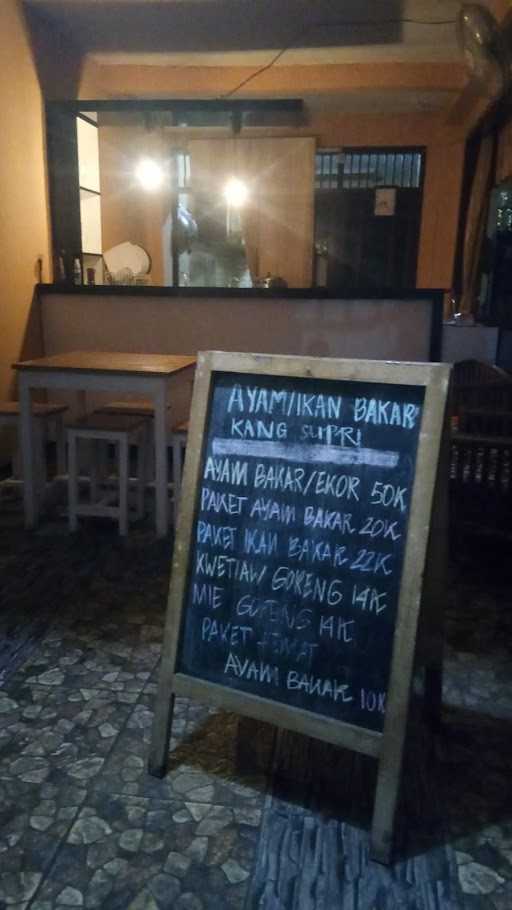 AYAM/IKAN BAKAR
KANG SUPRI
AYAM BAKAR/EKOR 50K
PAKET AYAM BAKAR 20K
PAKET IKAN BAKAR 22K
KWETIAW GORENG 14K
MIE GORENG 14K
PAKET HEMAT
AYAM BAKAR 10K